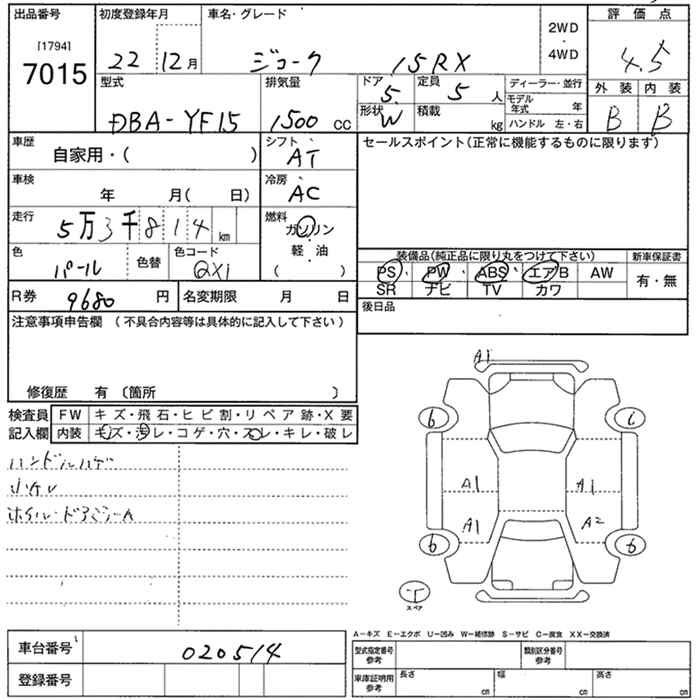 出品番号 初度登録年月 車名・グレード 2WD 評価点
[1794] 7015 22 12月 ジューク 15RX 4WD 4.5
型式 排気量 ドア 5 定員 5人 ディーラー・並行 外装 内装
DBA-YF15 1500cc 形状 W 積載 kg モデル年式 年 B B
ハンドル 左・右
車歴 自家用・( ) シフト AT セールスポイント(正常に機能するものに限ります)
車検 年 月( 日) 冷房 AC
走行 5万3千814km 燃料 ガソリン
軽油
( )
色 パール 色替 色コード QX1 装備品(純正品に限り丸をつけて下さい) 新車保証書
PS PW ABS エアB AW 有・無
SR ナビ TV カワ
R券 9680円 名変期限 月 日 後日品
注意事項申告欄 (不具合内容等は具体的に記入して下さい)
修復歴 有 〔箇所 〕
検査員 FW キズ・飛石・ヒビ割・リペア跡・X要
記入欄 内装 キズ・汚レ・コゲ・穴・スレ・キレ・破レ
ハンドルハゲ
小ケレ
ホイールドアミラーA
A1
6 6
A1 A1
A1 A2
6 6
T
スペア
車台番号 020514
登録番号
A-キズ E-エクボ U-凹み W-補修跡 S-サビ C-腐食 XX-交換済
型式指定番号 参考 類別区分番号 参考
車庫証明用 参考 長さ cm 幅 cm 高さ cm